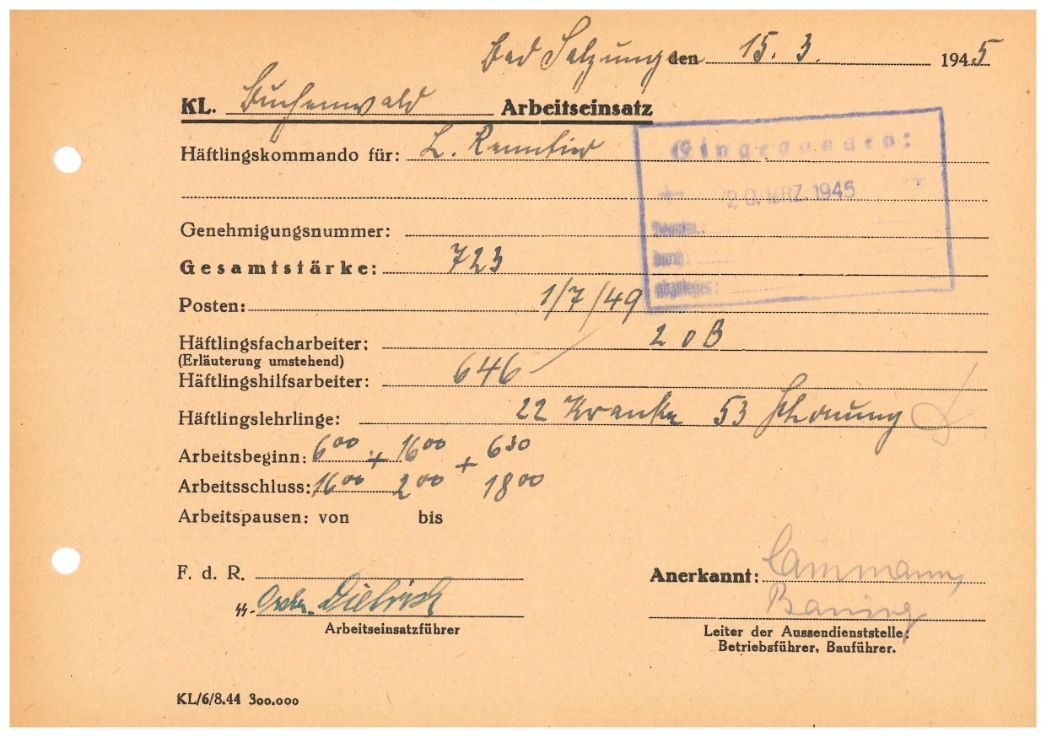 Bad Salzung den 15. 3. 1945
KL. Buchenwald Arbeitseinsatz
Häftlingskommando für: L. Renntier
Eingegangen:
20. MRZ. 1945
Genehmigungsnummer:
durch:
Gesamtstärke: 723
abzulegen:
Posten: 1/7/49
Häftlingsfacharbeiter: 2 o B
(Erläuterung umstehend)
Häftlingshilfsarbeiter: 646
Häftlingslehrlinge: 22 Kranke 53 Schonung
Arbeitsbeginn: 6⁰⁰ + 16⁰⁰ + 6³⁰
Arbeitsschluss: 16⁰⁰ 2⁰⁰ 18⁰⁰
Arbeitspausen: von bis
F. d. R.
Anerkannt: Cammann,
SS- Dietrich
Bauing
Arbeitseinsatzführer
Leiter der Aussendienststelle:
Betriebsführer, Bauführer.
KL/6/8.44 300.000